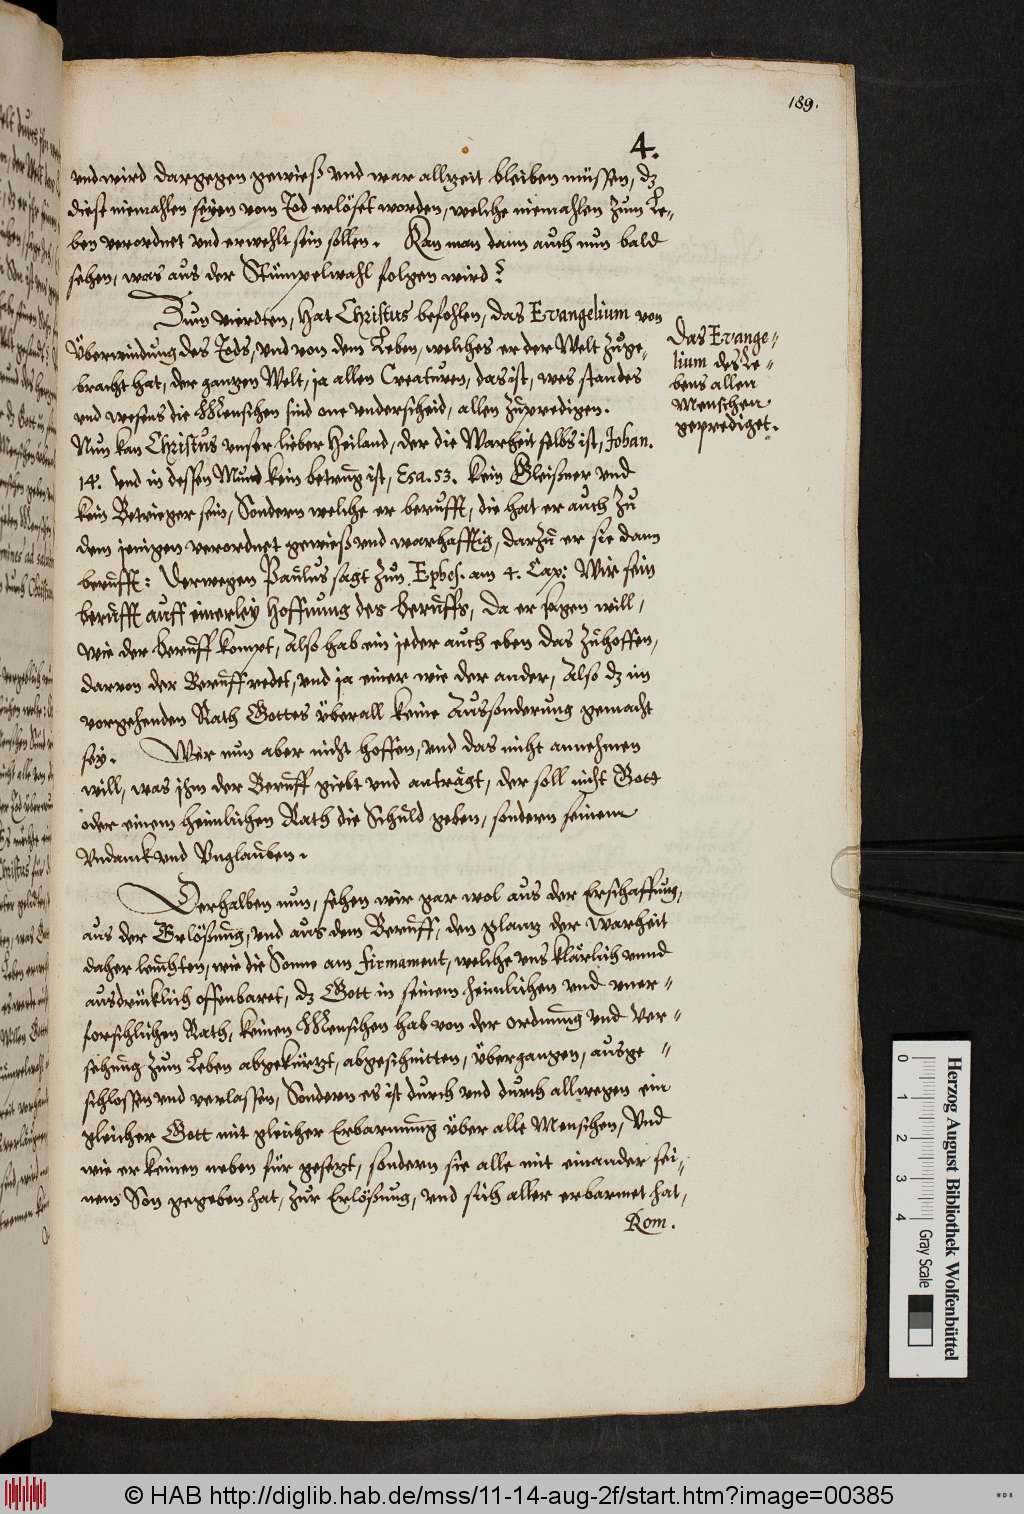 189.
4.
vnd wird dargegen gewieß vnd war allzeit bleiben müssen, dz
diese niemahlen seyen vom Tod erlöset worden, welche niemahlen zum Le-
ben verordnet vnd erwehlt sein sollen. Kan man dann auch nun bald
sehen, was aus der Stümpelwahl folgen wird?
Zum vierdten, hat Christus befohlen, das Evangelium von
Überwindung des Tods, vnd von dem Leben, welches er der Welt zuge-
bracht hat, der gantzen Welt, ja allen Creaturen, das ist, wes standes
vnd wesens die Menschen sind one vnderscheid, allen zupredigen.
Nun kan Christus vnser lieber Heiland, der die Warheit selbs ist, Johan.
14. vnd in dessen Mund kein betrug ist, Esa. 53. kein Gleißner vnd
kein Betrieger sein, Sondern welche er berufft, die hat er auch zu
dem jenigen verordnet gewieß vnd warhafftig, darzu er sie dann
berufft: Derwegen Paulus sagt zun Ephes. am 4. Cap: Wir sein
berufft auff einerley Hoffnung des beruffs, da er sagen will,
wie der beruff kompt, Also hab ein jeder auch eben das zuhoffen,
darvon der Beruff redet, vnd ja einer wie der ander, Also dz im
vorgehenden Rath Gottes überall keine Aussonderung gemacht
sey. Wer nun aber nicht hoffen, vnd das nicht annehmen
will, was ihm der Beruff giebt vnd anträgt, der soll nicht Gott
oder einem heimlichen Rath die Schuld geben, sondern seinem
Vndanck vnd Vnglauben.
Derhalben nun, sehen wir gar wol aus der Erschaffung,
aus der Erlösung, vnd aus dem Beruff, den glantz der Warheit
daher leuchten, wie die Sonne am firmament, welche vns klärlich vnnd
ausdrücklich offenbaret, dz Gott in seinem heimlichen vnd vner-
forschlichen Rath, keinen Menschen hab von der ordnung vnd Ver-
sehung zum Leben abgekürtzt, abgeschnitten, übergangen, ausge-
schlossen vnd verlassen, Sondern es ist durch vnd durch allwegen ein
gleicher Gott mit gleicher Erbarmung über alle Menschen, Vnd
wie er keinen neben für gesetzt, sondern sie alle mit einander sei-
nem Son gegeben hat, zur Erlösung, vnd sich aller erbarmet hat,
Rom.
Das Evange-
lium des Le-
bens allen
Menschen
geprediget.
Herzog August Bibliothek Wolfenbüttel
0 1 2 3 4
Gray Scale
© HAB http://diglib.hab.de/mss/11-14-aug-2f/start.htm?image=00385